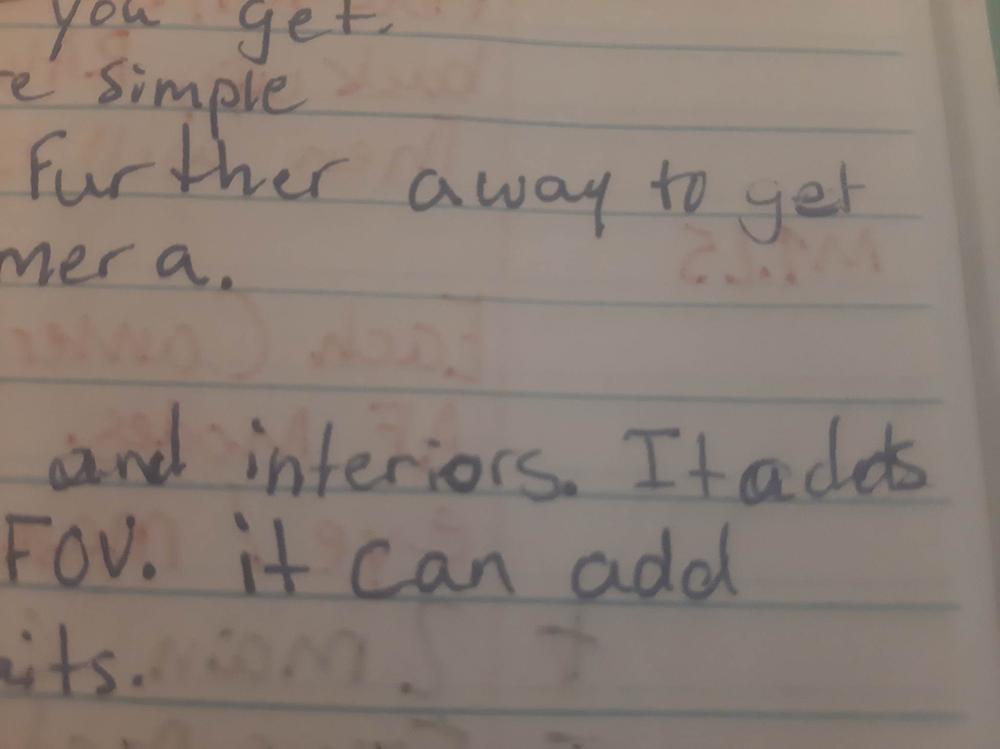 you get.
e simple
further away to get
mera.
and interiors. It adds
FOV. it can add
its.